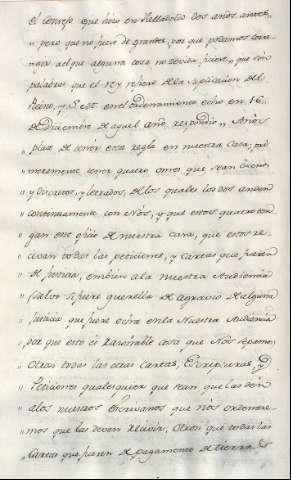 el consejo que hizo en Valladolid dos años antes,
" pero que no fuesen de grandes, por que podamos cas-
tigar a el que alguna cosa no devida ficiere, que son
palabras que el Rey refiere de la suplicacion del
Reino, y S.est. en el ordenamiento echo en 16,
de Diciembre de aquel año, respondio, " A Nos
place de tener esta regla en nuestra casa, pri
meramente tener quatro omes que sean buenos,
" y discretos, y letrados, de los quales los dos anden
" continuamente con Nós, y que estos quatro ten-
" gan este oficio de nuestra casa, que estos re-
" civan todas las peticiones, y cartas que fueren
" de justicia, embien a la nuestra Audiencia
" salvo si fuere querella de agravio de alguna
" Justicia que fuere echa en la Nuestra Audiencia
" por que esto es razonable cosa que Nós sepamos,
" Otrosi todas las otras Cartas, Escrituras, y
" Peticiones qualesquier que sean que las den
" a los nuestros Escrivanos que nós ordenare-
" mos que las deven recivir, Otrosi que todas las
" Cartas que fueren de pagamento de tierra